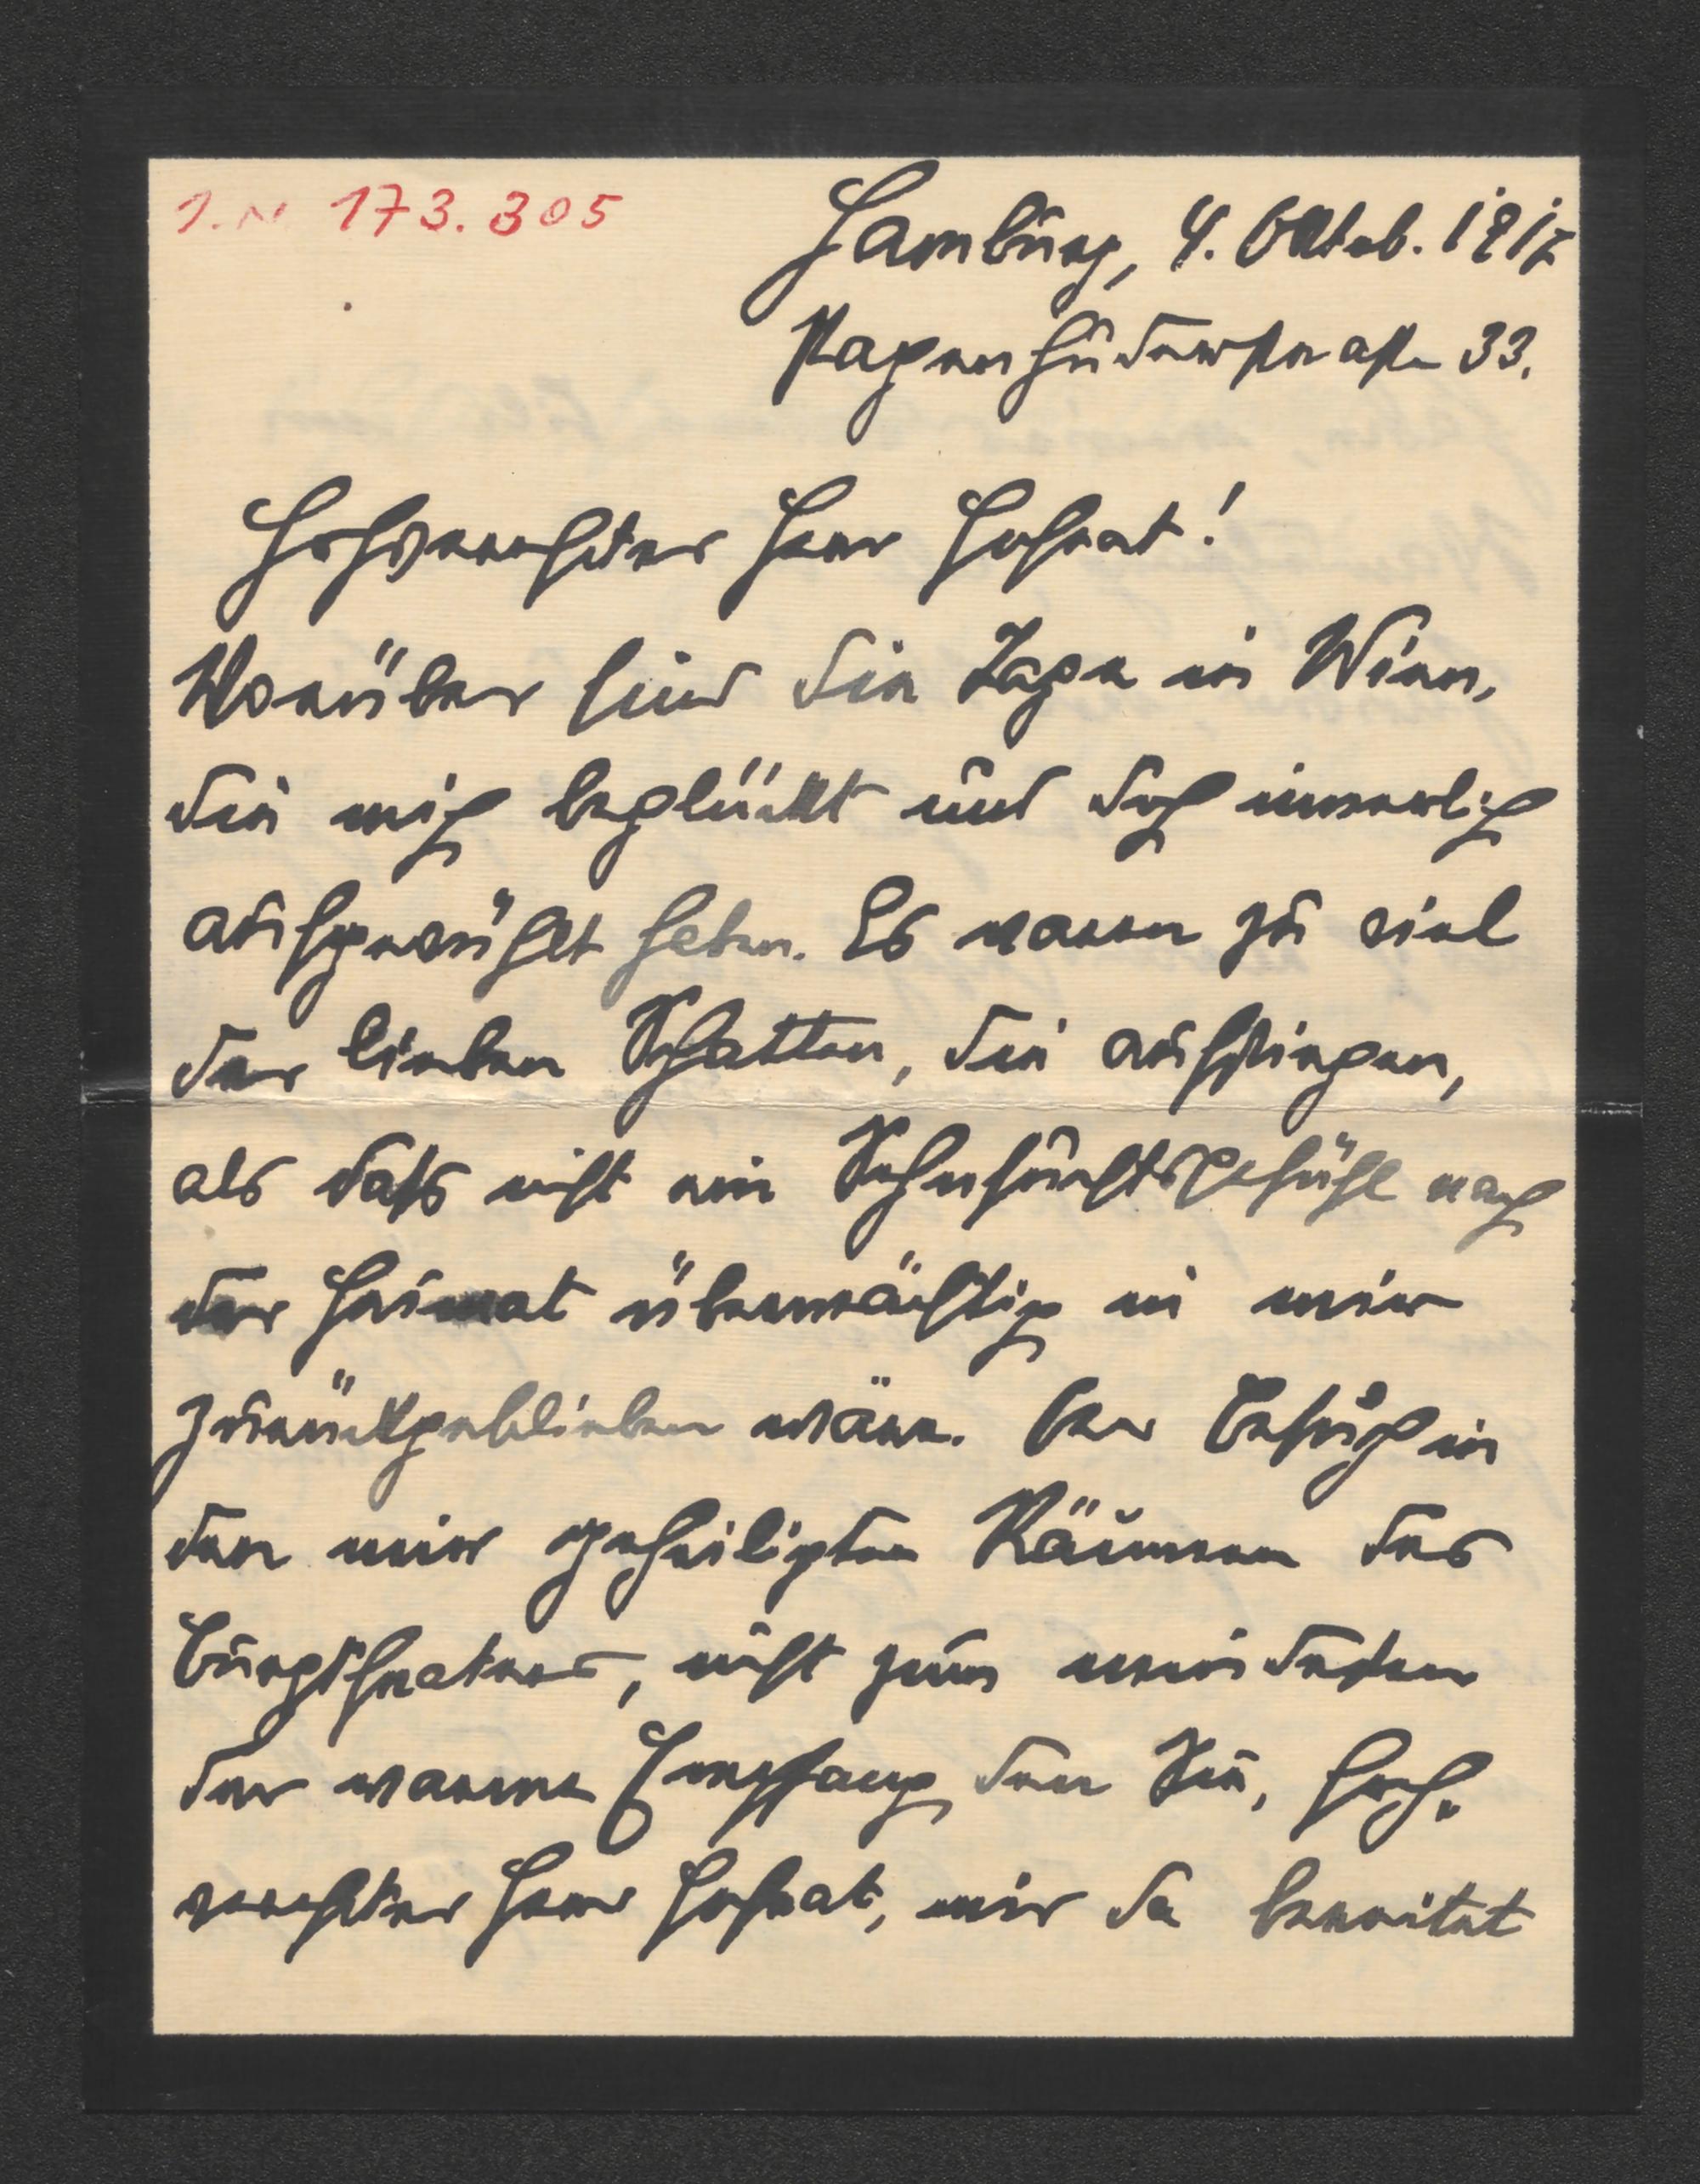 I.N. 173.305
Hamburg, 4. Oktob. 1917
Papenhuderstraße 33.
Hochverehrter Herr Hofrat!
Vorüber sind die Tage in Wien,
die mich beglückt und doch innerlich
aufgewühlt haben. Es waren zu viel
der lieben Schatten, die aufstiegen,
als dass nicht ein Sehnsuchtsgefühl nach
der Heimat übermächtig in mir
zurückgeblieben wäre. Der Besuch in
den mir geheiligten Räumen des
Burgtheaters, nicht zum mindesten
der warme Empfang den Sie, hoch-
verehrter Herr Hofrat, mir da bereitet